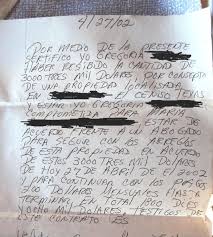 4/27/02
POR MEDIO DE LA PRESENTE
CERTIFICO YO GREGORIA
HABER RECIBIDO LA CANTIDAD DE
3000 TRES MIL DOLARES, POR CONCEPTO
DE UNA PROPIEDAD LOCALISADA
EN TEXAS
Y ESTAR YO GREGORIA
COMPROMETIDA PARA MARIA
ESTAR DE
ACUERDO FRENTE A UN ABOGADO
PARA SEGUIR CON LOS ARREGLOS
DE ESTA PROPIEDAD EN ACUERDO
DE ESTOS 3000 TRES MIL DOLARES
DE HOY 27 DE ABRIL DE 2002
Y PARA CONTINUAR CON LOS PAGOS
DOLARES MENSUALES HASTA
TERMINAR EN TOTAL 18000 DIES
Y OCHO MIL DOLARES, TESTIGOS DE
ESTE CONTRATO ES